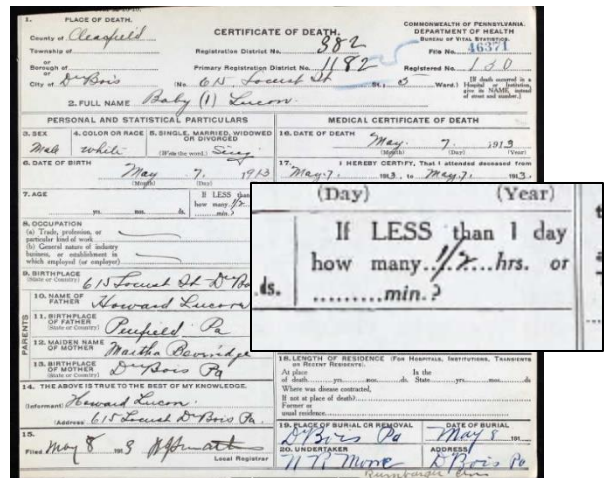 1. PLACE OF DEATH.
County of Clearfield
Township of
or
Borough of
or
City of DuBois
CERTIFICATE OF DEATH.
Registration District No. 382
Primary Registration District No. 1182
(No. 615 Locust St St., 5 Ward.)
COMMONWEALTH OF PENNSYLVANIA.
DEPARTMENT OF HEALTH
BUREAU OF VITAL STATISTICS.
File No. 46371
Registered No. 150
[If death occurred in a
Hospital or Institution,
give its NAME, instead
of street and number.]
2. FULL NAME Baby (1) Lucon.
PERSONAL AND STATISTICAL PARTICULARS
3. SEX
Male
4. COLOR OR RACE
White
5. SINGLE, MARRIED, WIDOWED
OR DIVORCED
(Write the word.) Sing
6. DATE OF BIRTH
May 7, 1913
(Month) (Day)
7. AGE
yrs. mos. ds.
If LESS than
how many 1/2
min.?
8. OCCUPATION
(a) Trade, profession, or
particular kind of work
(b) General nature of industry
business, or establishment in
which employed (or employer)
9. BIRTHPLACE
(State or Country) 615 Locust St DuBo
PARENTS
10. NAME OF
FATHER Howard Lucon
11. BIRTHPLACE
OF FATHER
(State or Country) Penfield Pa
12. MAIDEN NAME
OF MOTHER Martha Beveridge
13. BIRTHPLACE
OF MOTHER
(State or Country) DuBois Pa
14. THE ABOVE IS TRUE TO THE BEST OF MY KNOWLEDGE.
(Informant) Howard Lucon.
(Address) 615 Locust DuBois Pa.
15.
Filed May 8 1913
Local Registrar
MEDICAL CERTIFICATE OF DEATH
16. DATE OF DEATH
May. 7. 1913
(Month) (Day) (Year)
17. I HEREBY CERTIFY, That I attended deceased from
May. 7. 1913, to May. 7. 1913.
(Day) (Year)
If LESS than 1 day
how many 1/2 hrs. or
ds.
min.?
18. LENGTH OF RESIDENCE (FOR HOSPITALS, INSTITUTIONS, TRANSIENTS
OR RECENT RESIDENTS).
At place In the
of death yrs. mos. ds. State yrs. mos. ds.
Where was disease contracted,
If not at place of death?
Former or
usual residence.
19. PLACE OF BURIAL OR REMOVAL
DuBois Pa
DATE OF BURIAL
May 8 191
20. UNDERTAKER
N R Moore
ADDRESS
DuBois Pa